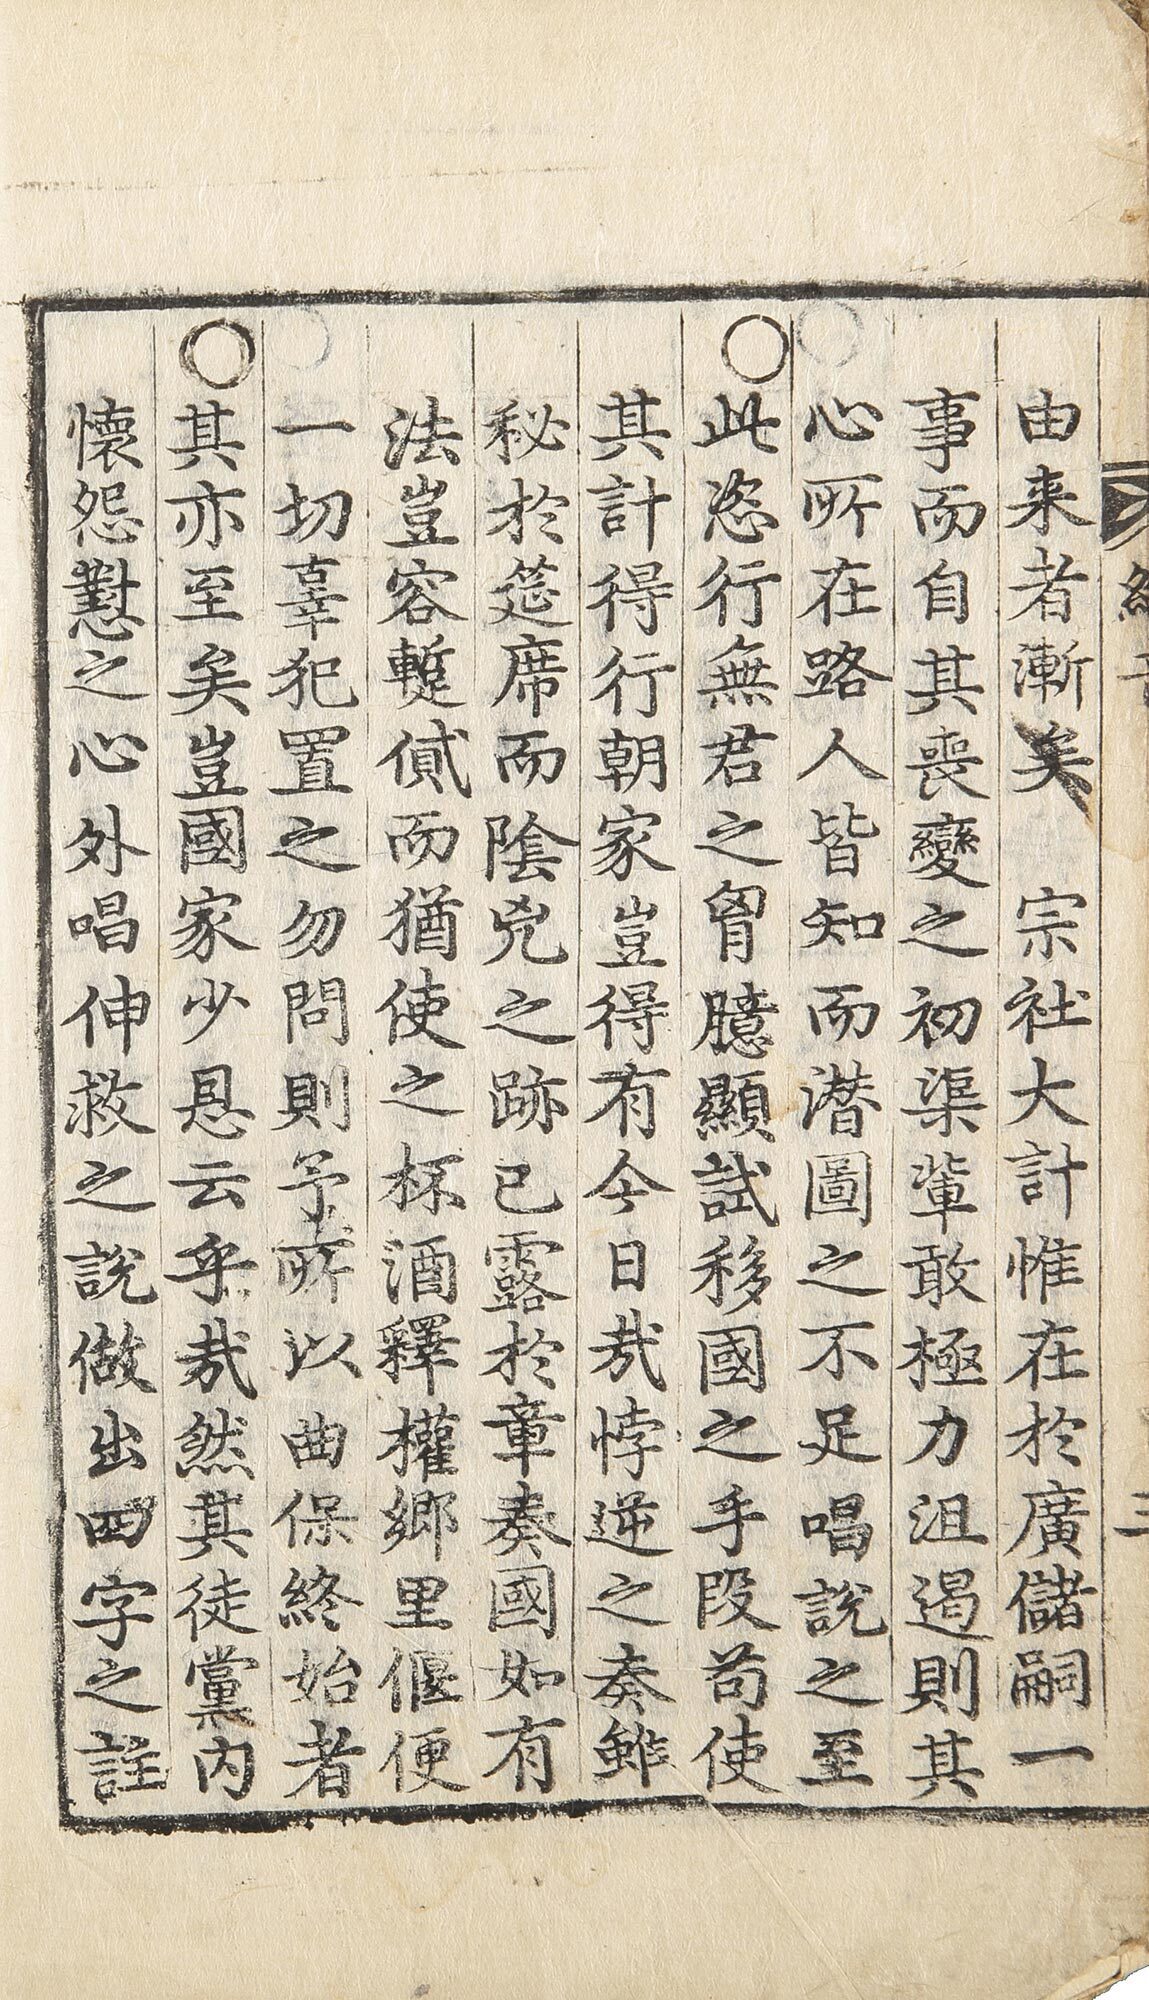 由来者漸矣　宗社大計惟在於廣儲嗣一
事而自其喪變之初渠輩敢極力沮遏則其
心所在路人皆知而潜圖之不足唱說之至
此恣行無君之胷臆顯試移國之手段苟使
其計得行朝家豈得有今日㦲悖逆之奏雖
秘於筵席而陰兇之跡已露於章奏國如有
法豈容蹔貸而猶使之杯酒釋權鄉里偃便
一切辜犯置之勿問則予所以曲保終始者
其亦至矣豈國家少恩云乎㦲然其徒黨內
懷怨懟之心外唱伸救之說做出四字之註
三